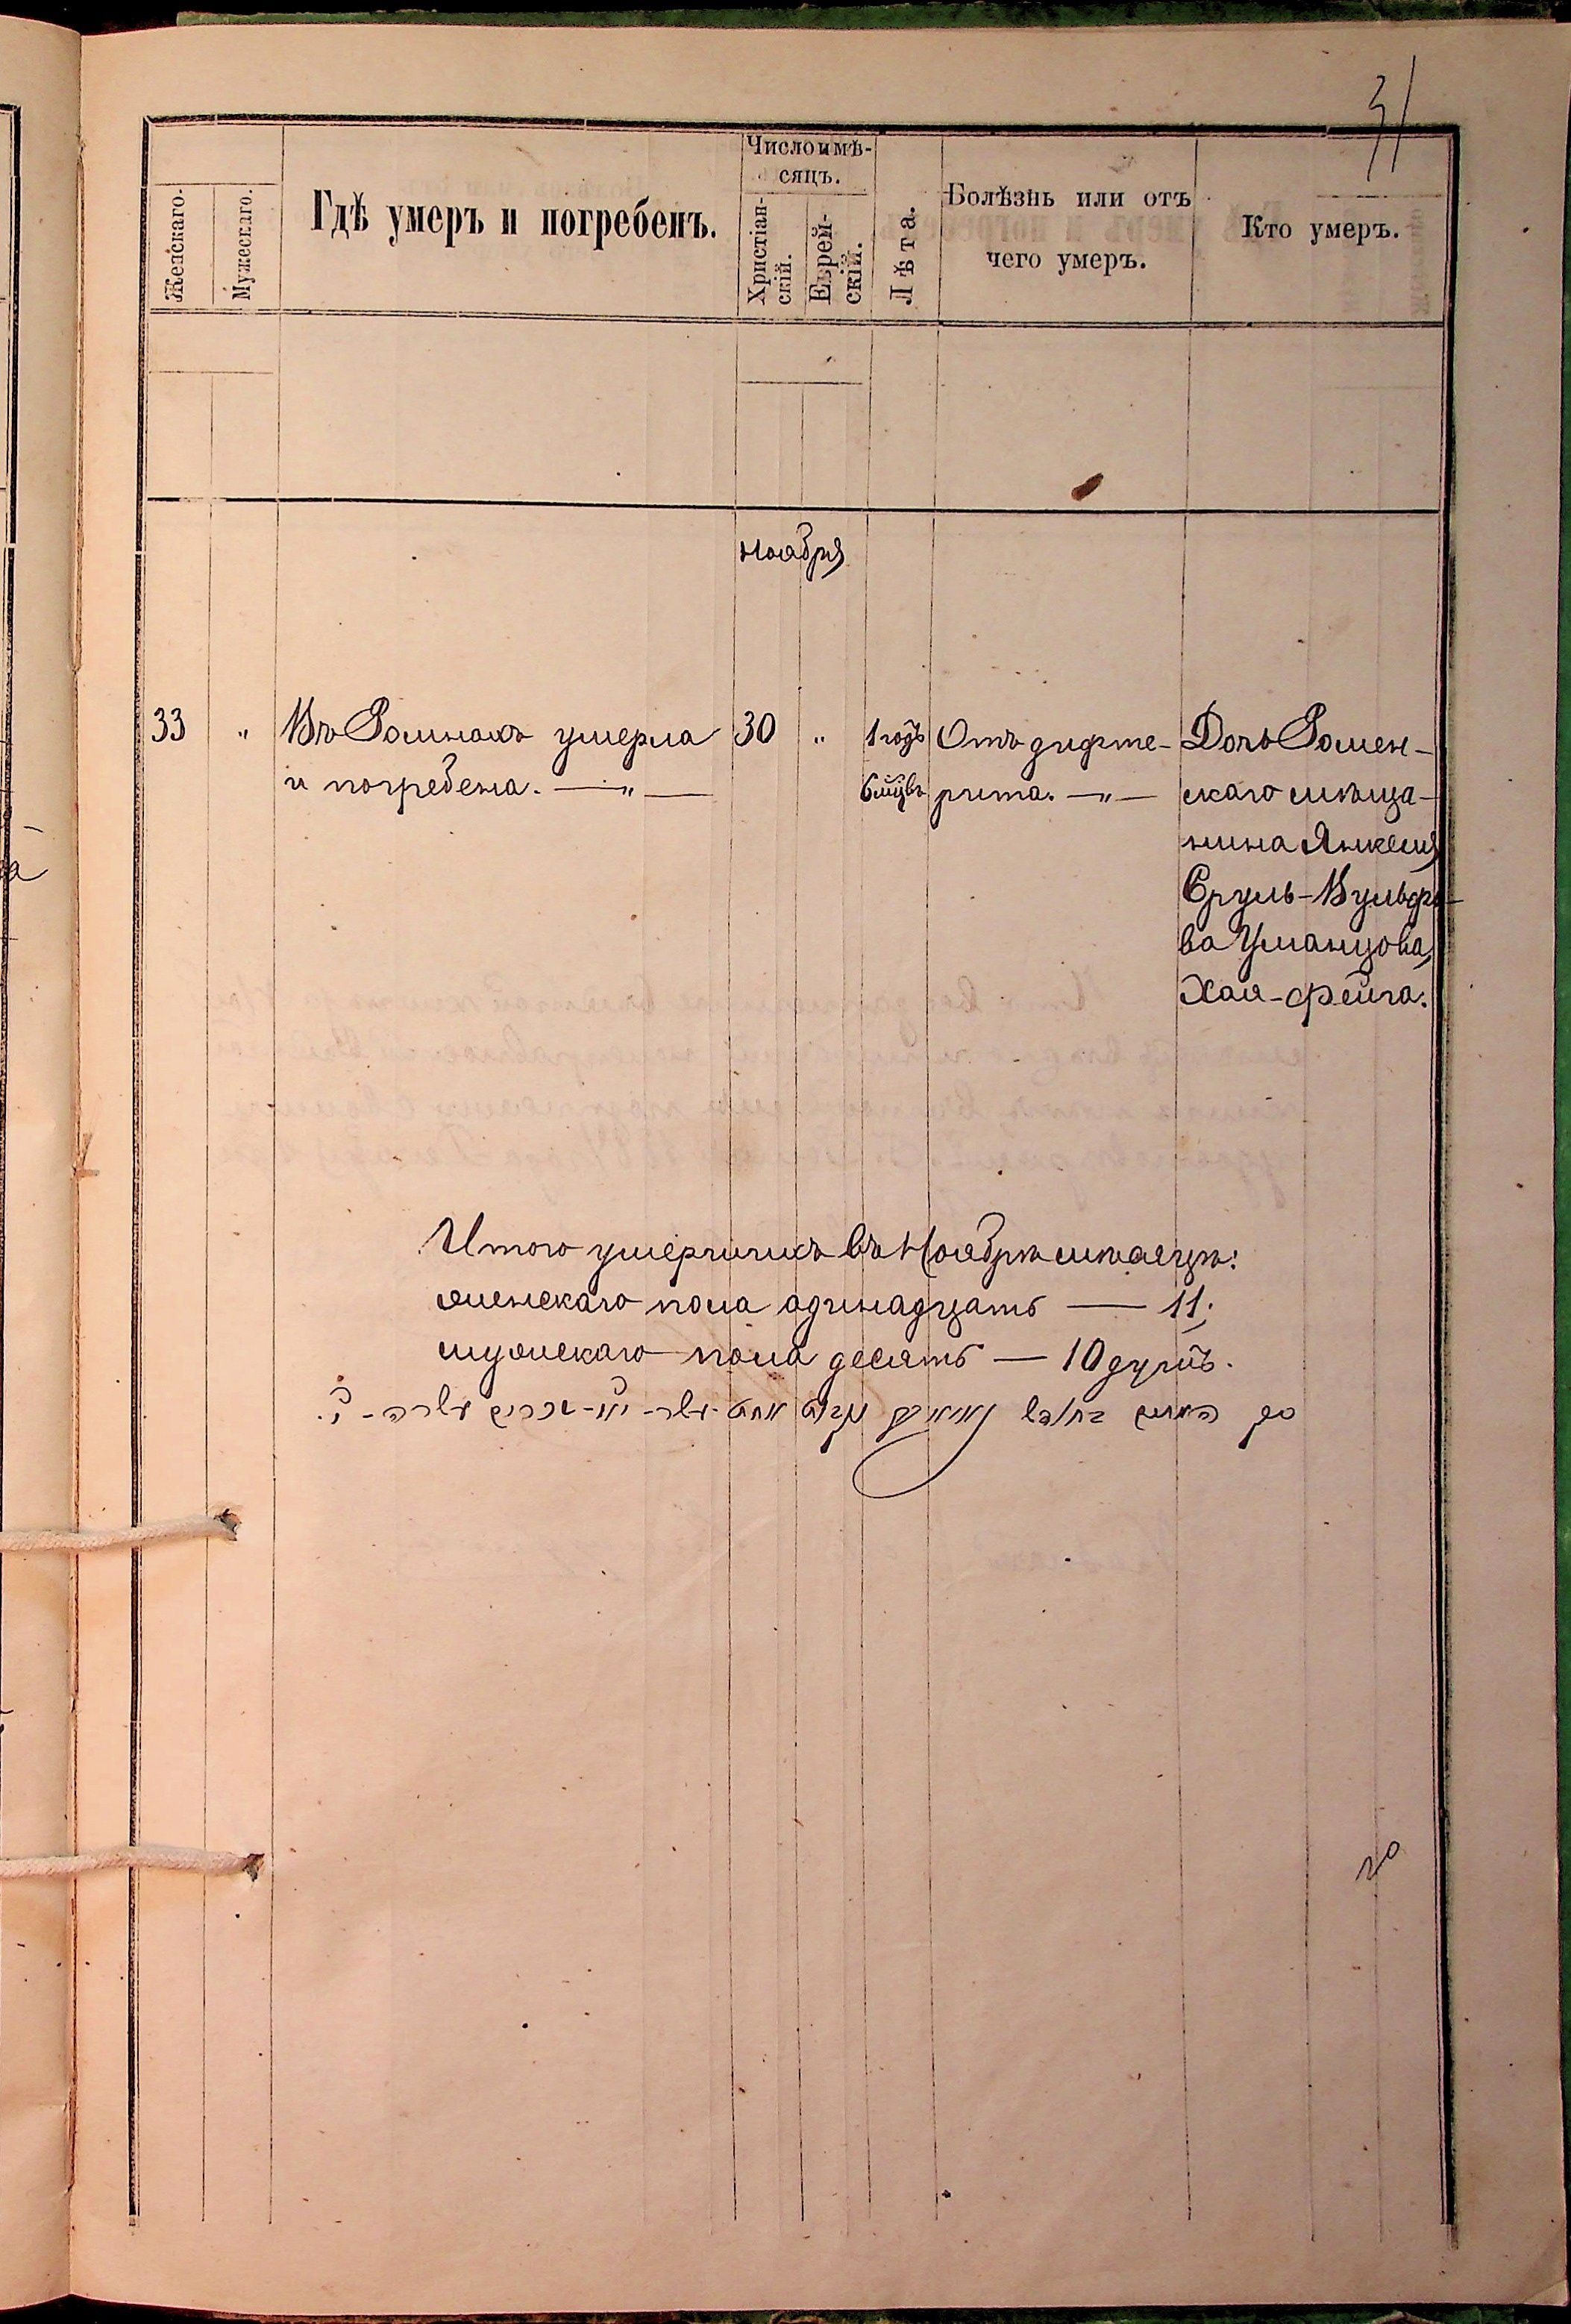 31
Женскаго.
Мужескаго.
Гдѣ умеръ и погребенъ.
Число и мѣ-
сяцъ.
Христіан-
скій.
Еврей-
скій.
Лѣта.
Болѣзнь или отъ
чего умеръ.
Кто умеръ.
ноября
33 " Въ Ромнахъ умерла 30 " 1 годъ Отъ дифте- Дочь Ромен-
и погребена. — " — 6 мцвъ рита. — " — скаго мѣща-
нина Янкеля
Сруль-Вульфо-
ва Уманцова,
Хая-Фейга.
Итого умершихъ въ Ноябрѣ мѣсяцѣ:
женскаго пола одинадцать — 11;
мужскаго пола десять — 10 душъ.